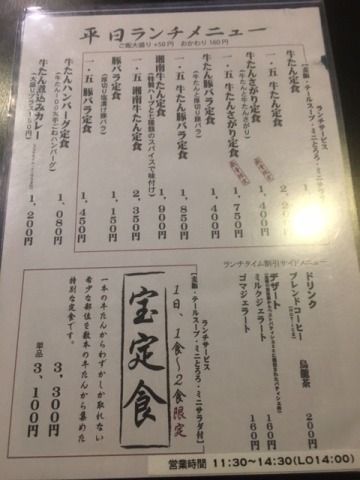 平日ランチメニュー
ご飯大盛り +50円 おかわり 160円
ランチサービス
【麦飯・テールスープ・ミニとろろ・ミニサラダ付】
牛たん定食
一・五 牛たん定食
牛たんさがり定食
(牛たんと牛たんさがり)
1,400円
一・五 牛たんさがり定食
1,750円
牛たん豚バラ定食
(牛たんと厚切り豚バラ)
1,400円
一・五 牛たん豚バラ定食
1,850円
湘南牛たん定食
(特製ハーブと七種類のスパイスで味付け)
1,900円
一・五 湘南牛たん定食
2,350円
豚バラ定食
(厚切り塩漬け豚バラ)
1,150円
一・五 豚バラ定食
1,450円
牛たんハンバーグ定食
(牛たん100%手ごねハンバーグ)
1,080円
牛たん煮込みカレー
1,200円
ランチタイム割引サイドメニュー
ドリンク
ブレンドコーヒー 烏龍茶
200円
デザート
ミルクジェラート
160円
ゴマジェラート
160円
ランチサービス
【麦飯・テールスープ・ミニとろろ・ミニサラダ付】
1日、1食〜2食限定
宝定食
一本の牛たんからわずかしか取れない
希少な部位を数本の牛たんから集めた
特別な定食です。
3,300円
単品 3,100円
営業時間 11:30~14:30(LO14:00)